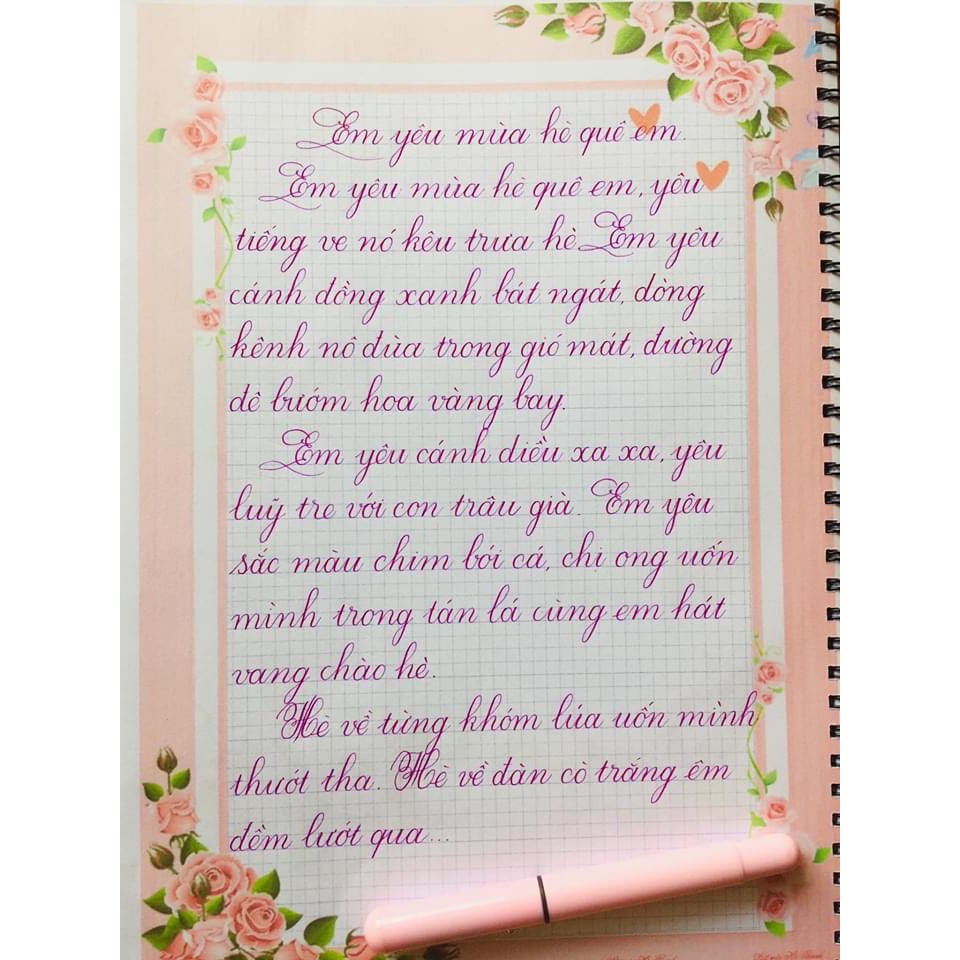 Em yêu mùa hè quê em.
Em yêu mùa hè quê em, yêu
tiếng ve nó kêu trưa hè. Em yêu
cánh đồng xanh bát ngát, dòng
kênh nô đùa trong gió mát, đường
đê bướm hoa vàng bay.
Em yêu cánh diều xa xa, yêu
luỹ tre với con trâu già. Em yêu
sắc màu chim bói cá, chị ong uốn
mình trong tán lá cùng em hát
vang chào hè.
Hè về từng khóm lúa uốn mình
thướt tha. Hè về đàn cò trắng êm
đềm lướt qua...